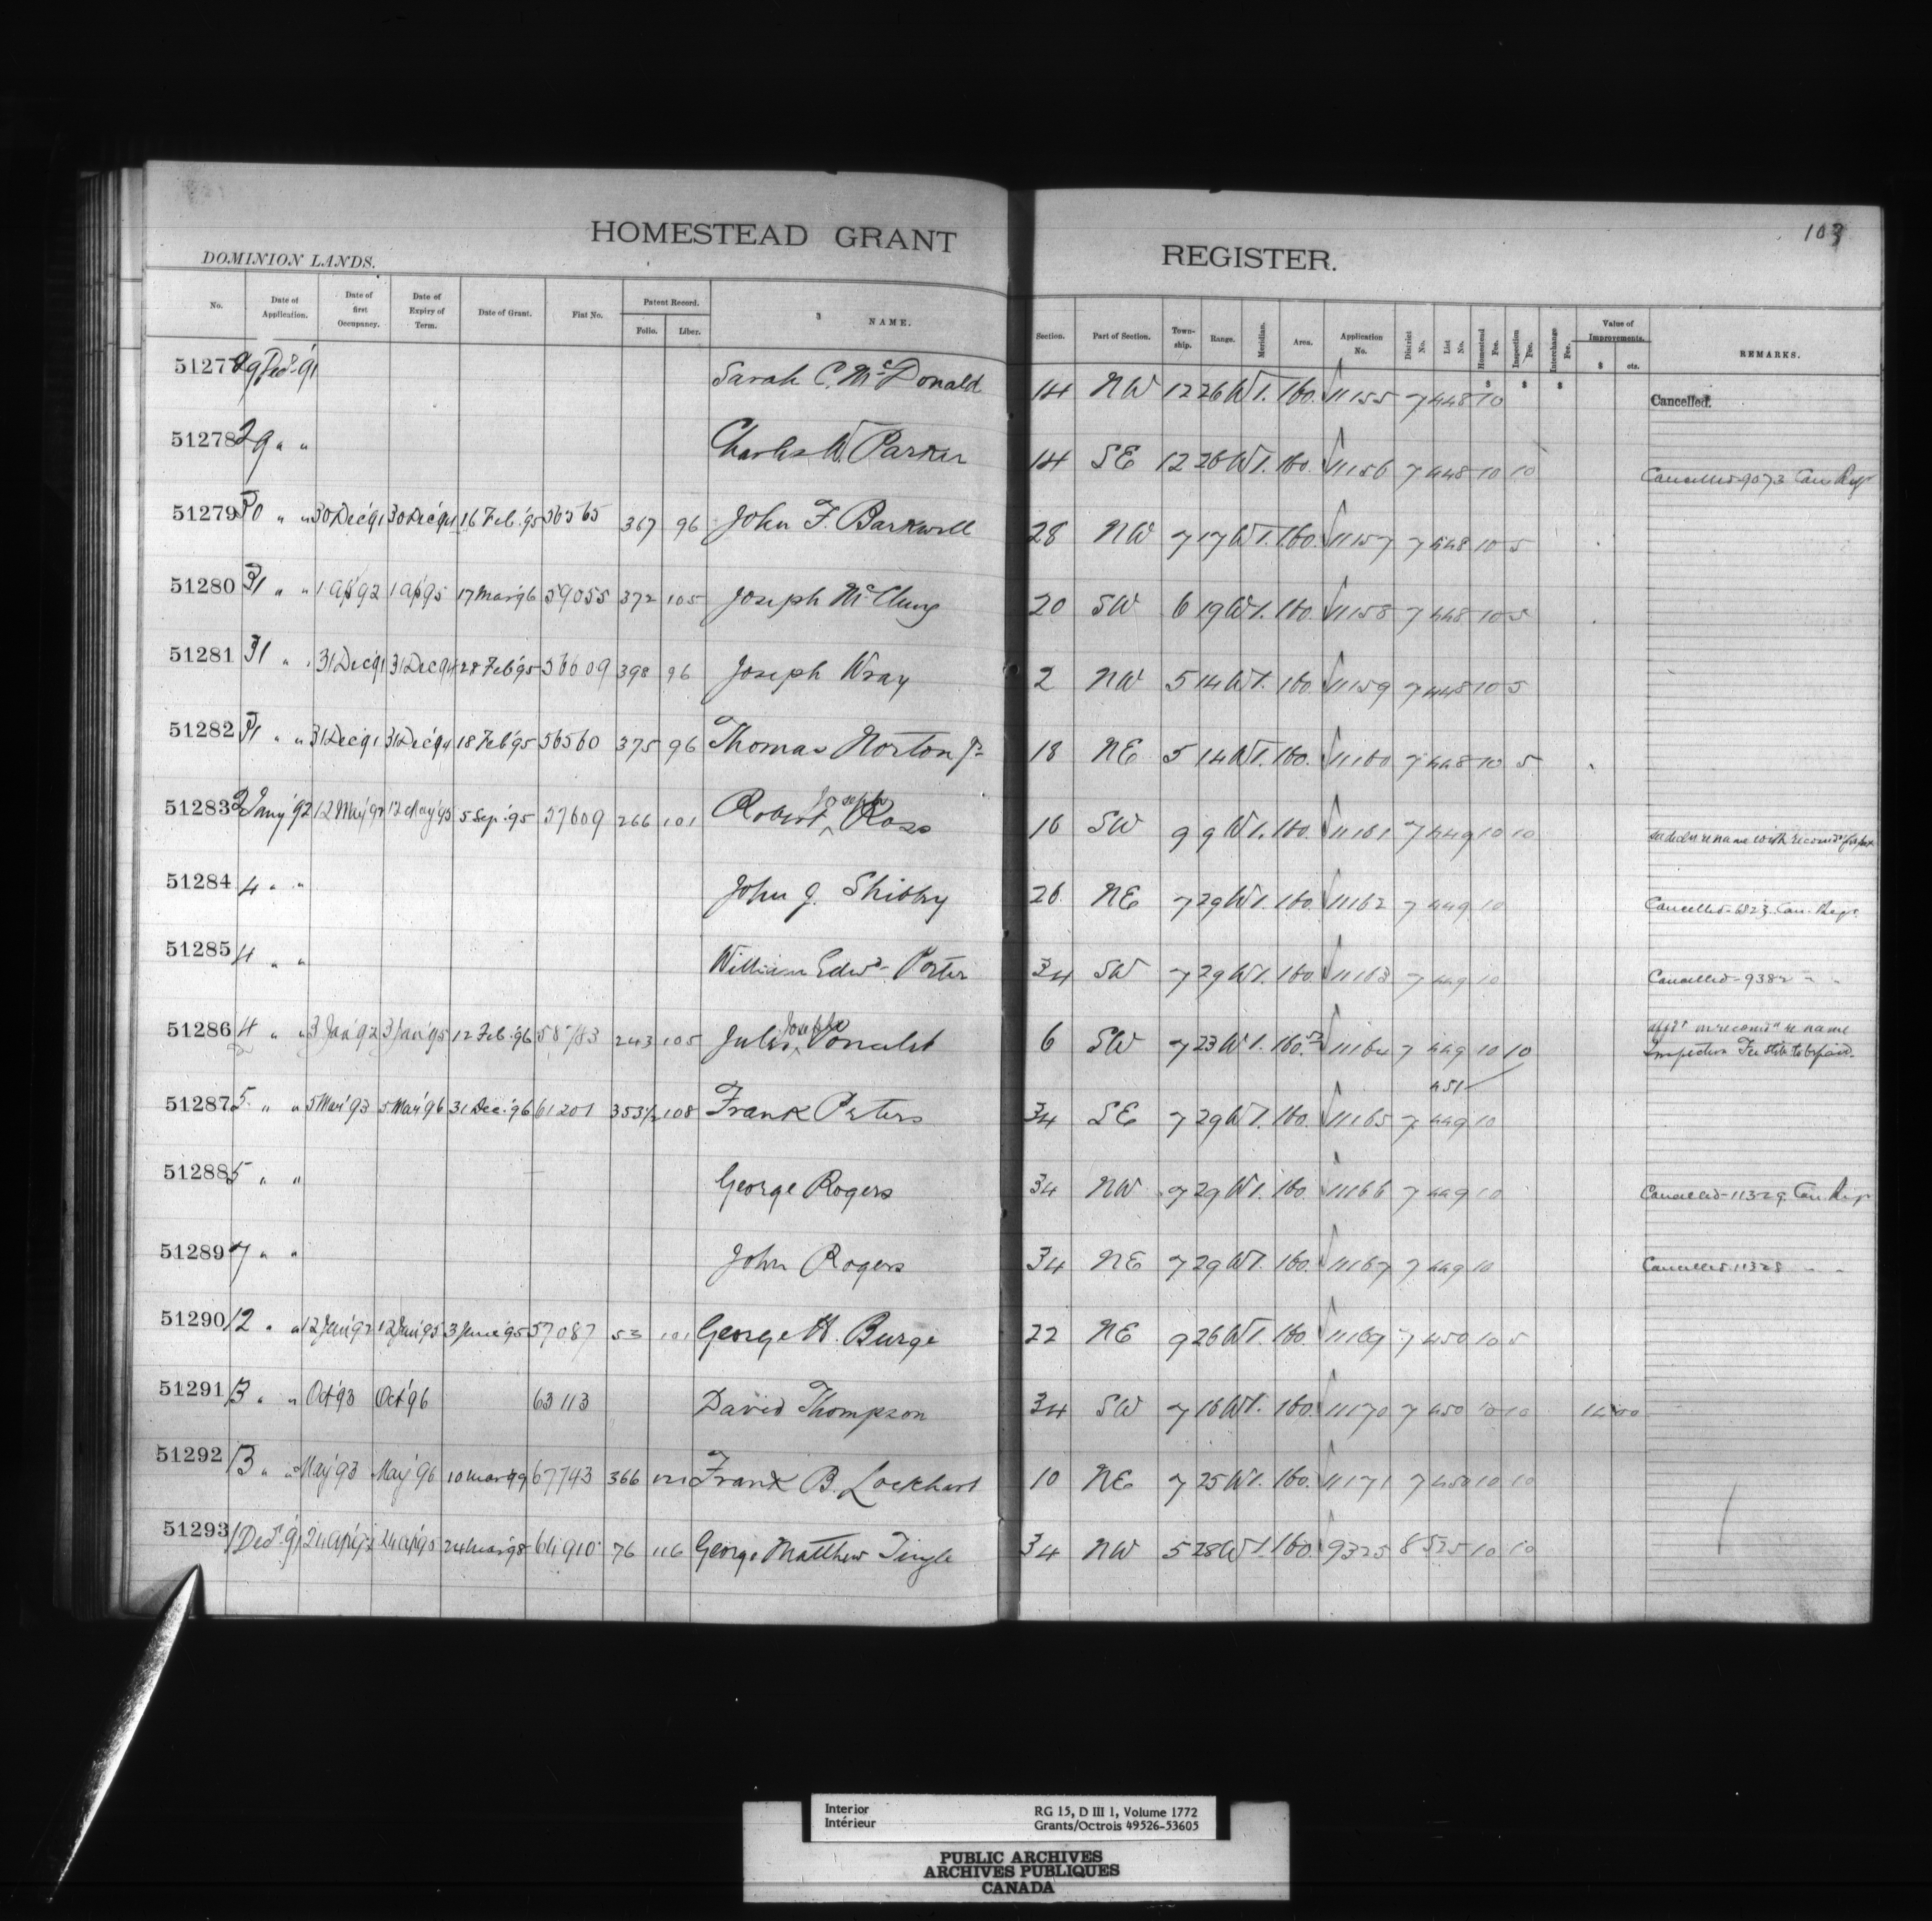 103
HOMESTEAD GRANT REGISTER.
DOMINION LANDS.
No. Date of Application. Date of first Occupancy. Date of Expiry of Term. Date of Grant. Fiat No. Patent Record. Folio. Liber. 3 NAME. Section. Part of Section. Town-ship. Range. Meridian. Area. Application No. District No. List No. Homestead Fee. Inspection Fee. Interchange Fee. Value of Improvements. $ cts. REMARKS.
$ $ $
51277 29 Decr '91 Sarah C. McDonald 14 NW 12 26 W1. 160. 11155 7 448 10 Cancelled.
51278 29 " " Charles W. Parker 14 SE 12 26 W1. 160. 11156 7 448 10 10 Cancelled 9073 Can Reg
51279 30 " " 30 Dec '91 30 Dec '94 16 Feb. '95 56565 367 96 John F. Barkwell 28 NW 7 17 W1. 160. 11157 7 448 10 5
51280 31 " " 1 Ap '92 1 Ap '95 17 Mar '96 59055 372 105 Joseph McClung 20 SW 6 19 W1. 160. 11158 7 448 10 5
51281 31 " " 31 Dec '91 31 Dec '94 28 Feb '95 56609 398 96 Joseph Wray 2 NW 5 14 W1. 160. 11159 7 448 10 5
51282 31 " " 31 Dec '91 31 Dec '94 18 Feb '95 56560 375 96 Thomas Norton Jr 18 NE 5 14 W1. 160. 11160 7 448 10 5
51283 2 Jany '92 12 May '92 12 May '95 5 Sep. '95 57609 266 101 Robert Joseph Ross 16 SW 9 9 W1. 160. 11161 7 449 10 10 re name with
51284 4 " " John J. 26 NE 7 29 W1. 160. 11162 7 449 10 Cancelled 6823 Can. Reg.
51285 4 " " William Edwd. Porter 34 SW 7 29 W1. 160. 11163 7 449 10 Cancelled 9382 " "
51286 4 " " 3 Jan '92 3 Jan '95 12 Feb. '96 58783 243 105 Joseph 6 SW 7 23 W1. 160. 11164 7 449 10 10 re name
Inspection Fee still to be paid.
51287 5 " " 5 Mar '93 5 Mar '96 31 Dec. '96 61201 353½ 108 Frank Peters 34 SE 7 29 W1. 160. 11165 7 449 10 451
51288 5 " " George Rogers 34 NW 7 29 W1. 160. 11166 7 449 10 Cancelled 11329 Can. Reg.
51289 7 " " John Rogers 34 NE 7 29 W1. 160. 11167 7 449 10 Cancelled 11328 " "
51290 12 " " 12 Jan '92 12 Jan '95 3 June '95 57087 53 101 George H. Burge 22 NE 9 26 W1. 160. 11169 7 450 10 5
51291 13 " " Oct '93 Oct '96 63113 David Thompson 34 SW 7 16 W1. 160. 11170 7 450 10 10
51292 13 " " May '93 May '96 10 Mar '99 67743 366 121 Frank B. Lockhart 10 NE 7 25 W1. 160. 11171 7 450 10 10
51293 1 Decr '91 24 Ap '92 24 Ap '95 24 Mar '98 64910 76 116 George Matthew Tingle 34 NW 5 28 W1. 160. 9325 8 525 10 10
Interior RG 15, D III 1, Volume 1772
Intérieur Grants/Octrois 49526-53605
PUBLIC ARCHIVES
ARCHIVES PUBLIQUES
CANADA